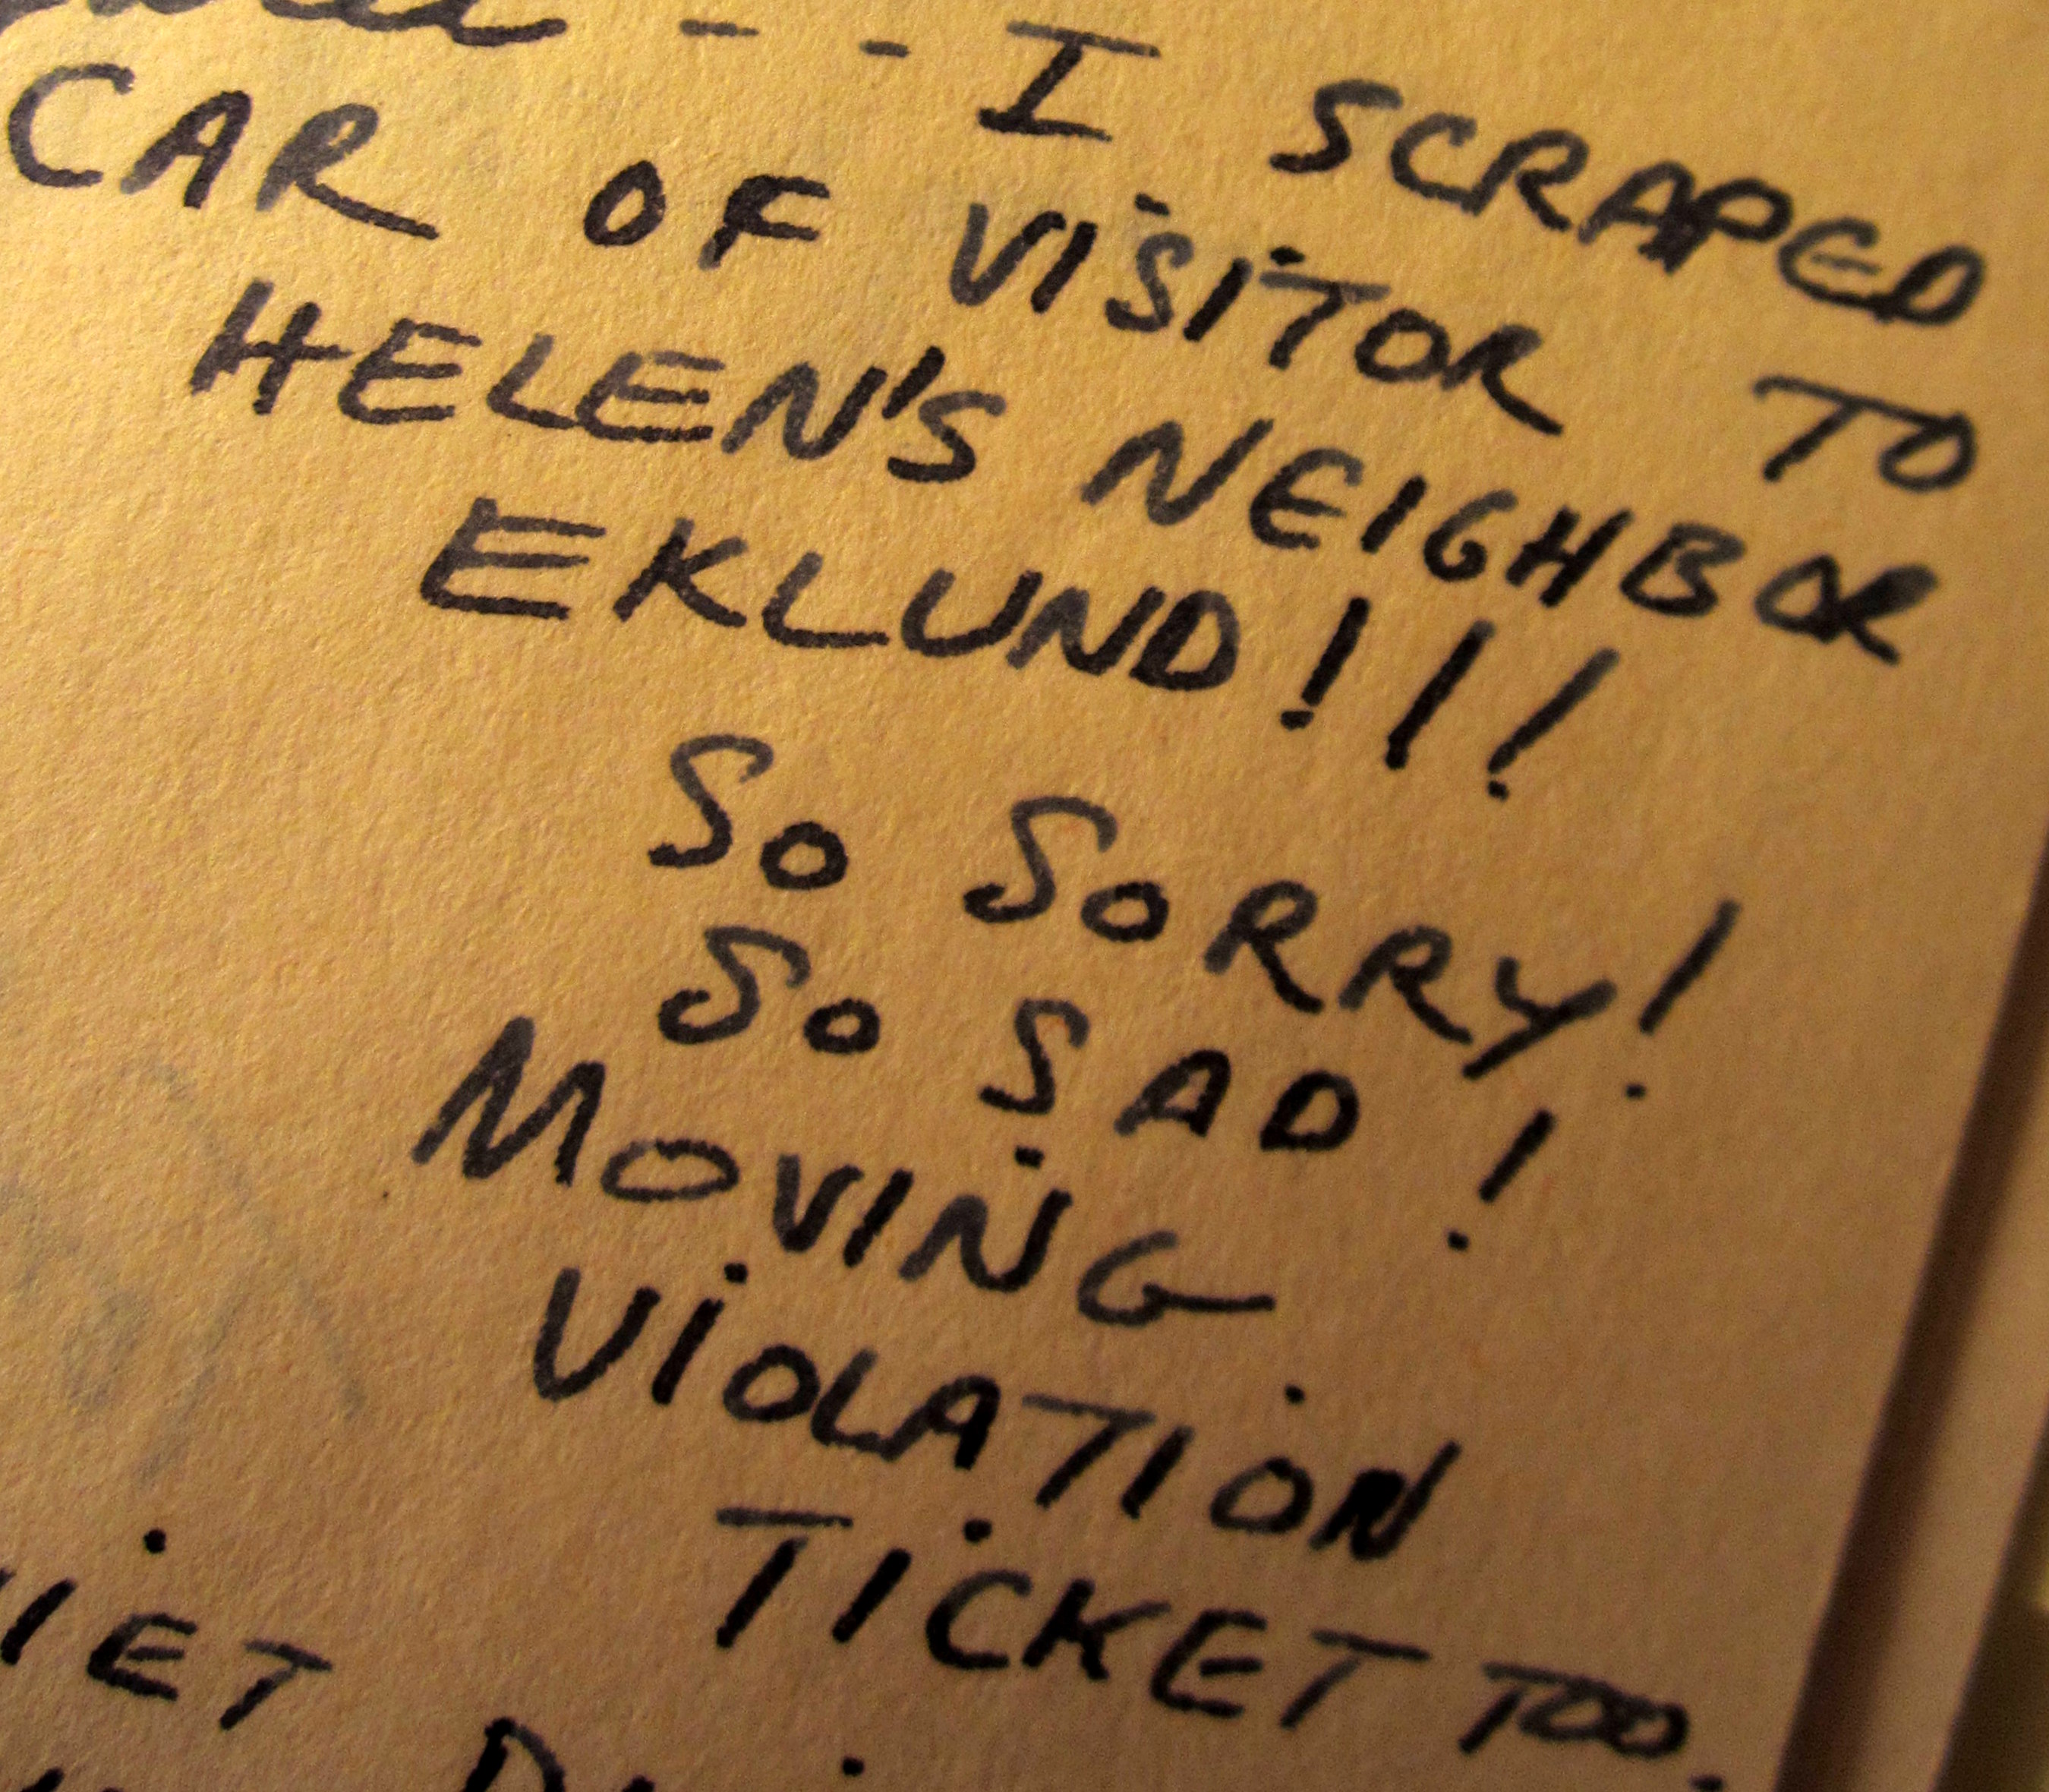 -- I SCRAPED
CAR OF VISITOR TO
HELEN'S NEIGHBOR
EKLUND!!!
SO SORRY!
SO SAD!
MOVING
VIOLATION
TICKET TOO.